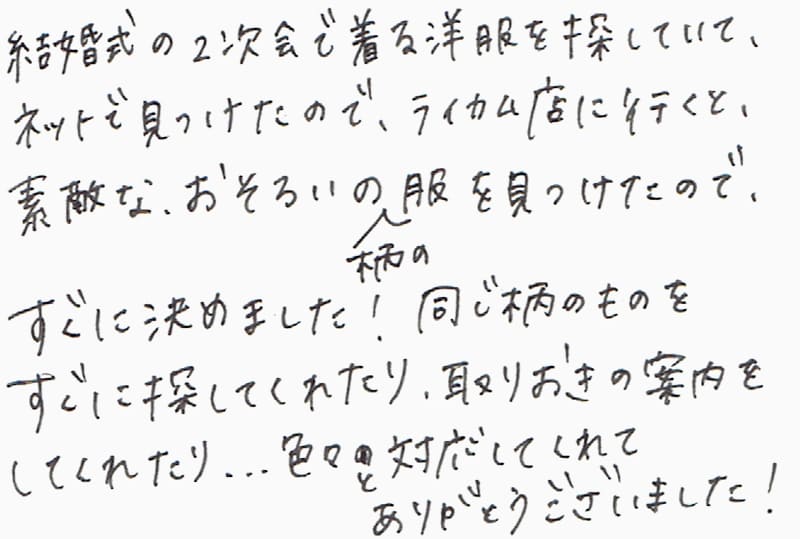 結婚式の2次会で着る洋服を探していて、
ネットで見つけたので、ライカム店に行くと、
素敵な、おそろいの服を見つけたので、
柄の
すぐに決めました！同じ柄のものを
すぐに探してくれたり、取りおきの案内を
してくれたり...色々と対応してくれて
ありがとうございました！